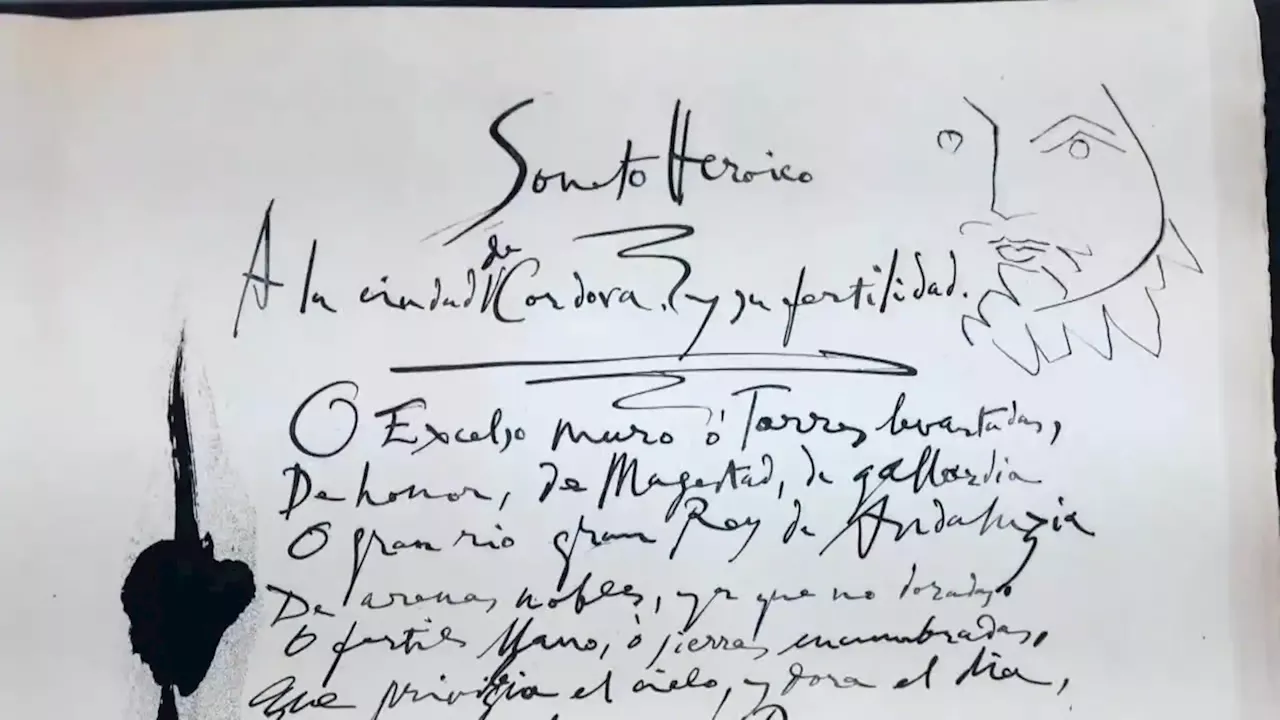 Soneto Heroico
A la ciudad de Cordova. y su fertilidad.
O Excelso muro ó Torres levantadas,
De honor, de Magestad, de gallardia
O gran rio gran Rey de Andaluzia
De arenas nobles, ya que no doradas.
O fertil llano, ò sierras encumbradas,
Que privilegia el cielo, y dora el dia,